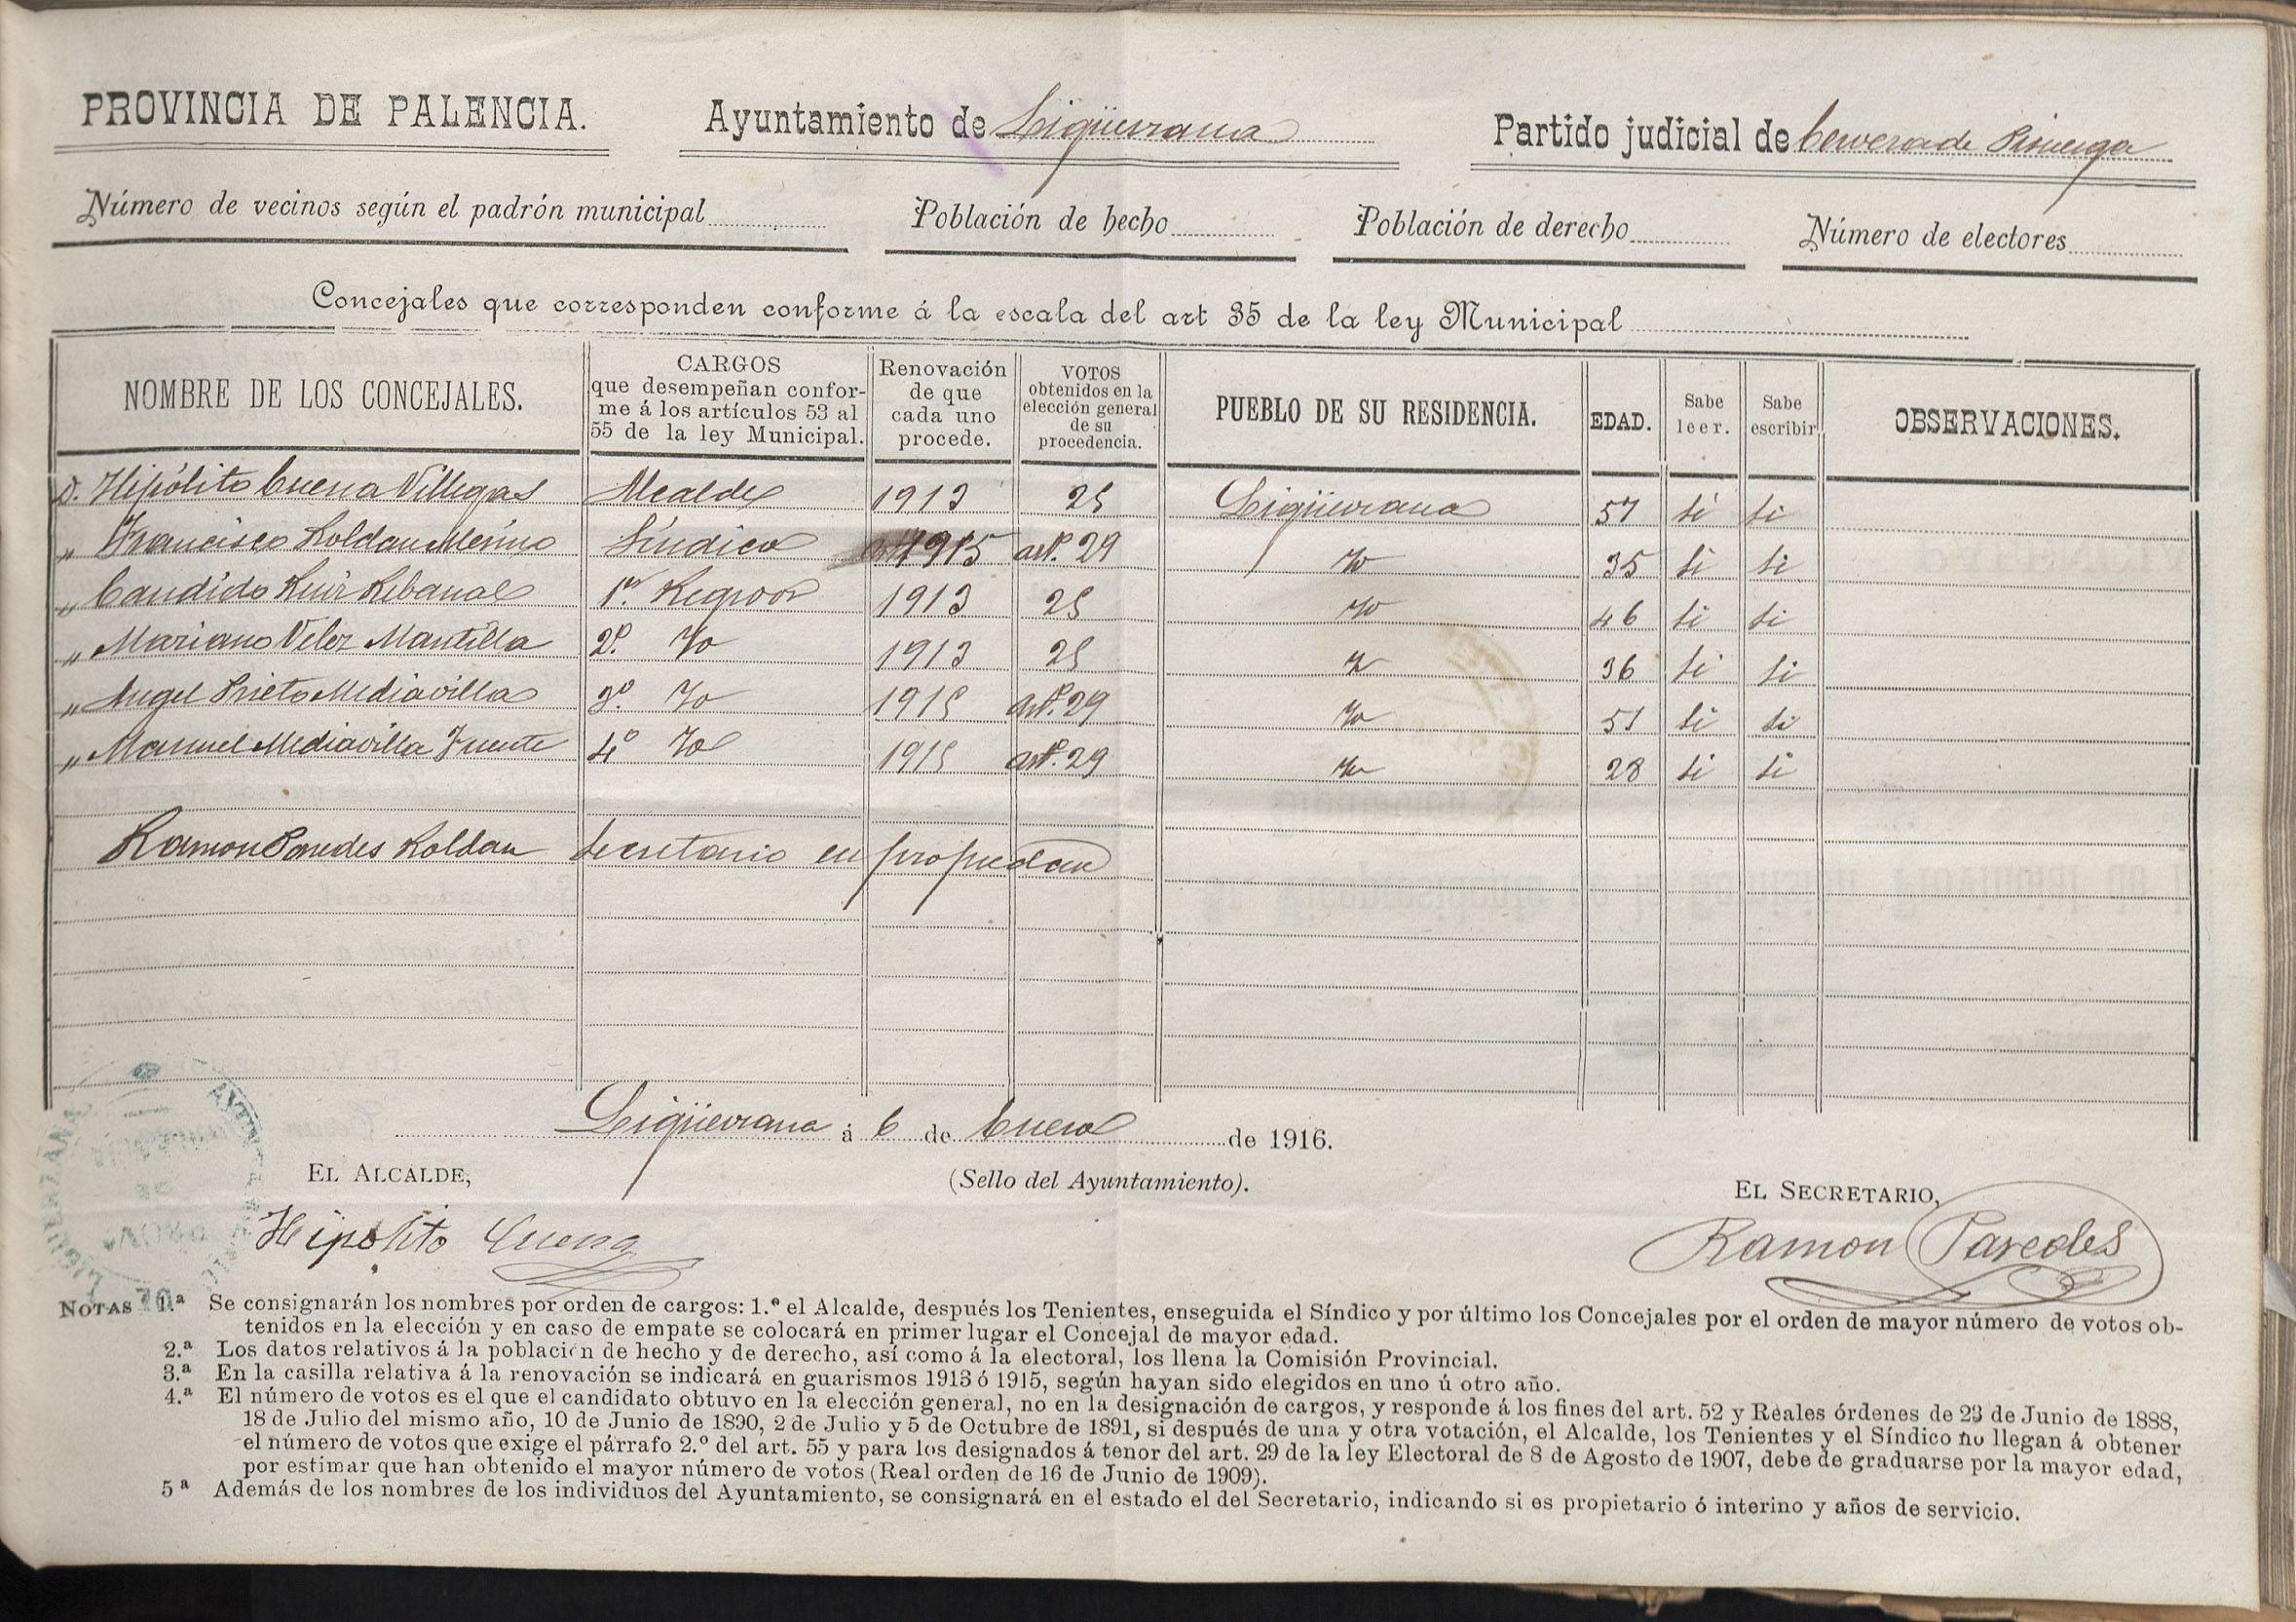 PROVINCIA DE PALENCIA. Ayuntamiento de Ligüerzana Partido judicial de Cervera de Pisuerga
Número de vecinos según el padrón municipal Población de hecho Población de derecho Número de electores
Concejales que corresponden conforme á la escala del art 35 de la ley Municipal
NOMBRE DE LOS CONCEJALES. CARGOS que desempeñan confor-me á los artículos 53 al 55 de la ley Municipal. Renovación de que cada uno procede. VOTOS obtenidos en la elección general de su procedencia. PUEBLO DE SU RESIDENCIA. EDAD. Sabe leer. Sabe escribir OBSERVACIONES.
D. Hipólito Cuena Villegas Alcalde 1913 25 Ligüerzana 57 si si
„ Francisco Roldan Merino Síndico 1915 art. 29 Yo 35 si si
„ Candido Ruiz Rebanal 1er. Regidor 1913 25 Yo 46 si si
„ Mariano Velez Mantilla 2º. Yo 1913 25 Yo 36 si si
„ Angel Prieto Mediavilla 3º. Yo 1915 art. 29 Yo 51 si si
„ Manuel Mediavilla Fuente 4º Yo 1915 art. 29 Yo 28 si si
Ramon Paredes Roldan Secretario en propiedad
Ligüerzana á 6 de Enero de 1916.
EL ALCALDE, (Sello del Ayuntamiento). EL SECRETARIO,
Hipolito Cuena Ramon Paredes
NOTAS 1.ª Se consignarán los nombres por orden de cargos: 1.º el Alcalde, después los Tenientes, enseguida el Síndico y por último los Concejales por el orden de mayor número de votos ob-
tenidos en la elección y en caso de empate se colocará en primer lugar el Concejal de mayor edad.
2.ª Los datos relativos á la población de hecho y de derecho, así como á la electoral, los llena la Comisión Provincial.
3.ª En la casilla relativa á la renovación se indicará en guarismos 1913 ó 1915, según hayan sido elegidos en uno ú otro año.
4.ª El número de votos es el que el candidato obtuvo en la elección general, no en la designación de cargos, y responde á los fines del art. 52 y Reales órdenes de 23 de Junio de 1888,
18 de Julio del mismo año, 10 de Junio de 1890, 2 de Julio y 5 de Octubre de 1891, si después de una y otra votación, el Alcalde, los Tenientes y el Síndico no llegan á obtener
el número de votos que exige el párrafo 2.º del art. 55 y para los designados á tenor del art. 29 de la ley Electoral de 8 de Agosto de 1907, debe de graduarse por la mayor edad,
por estimar que han obtenido el mayor número de votos (Real orden de 16 de Junio de 1909).
5ª Además de los nombres de los individuos del Ayuntamiento, se consignará en el estado el del Secretario, indicando si es propietario ó interino y años de servicio.